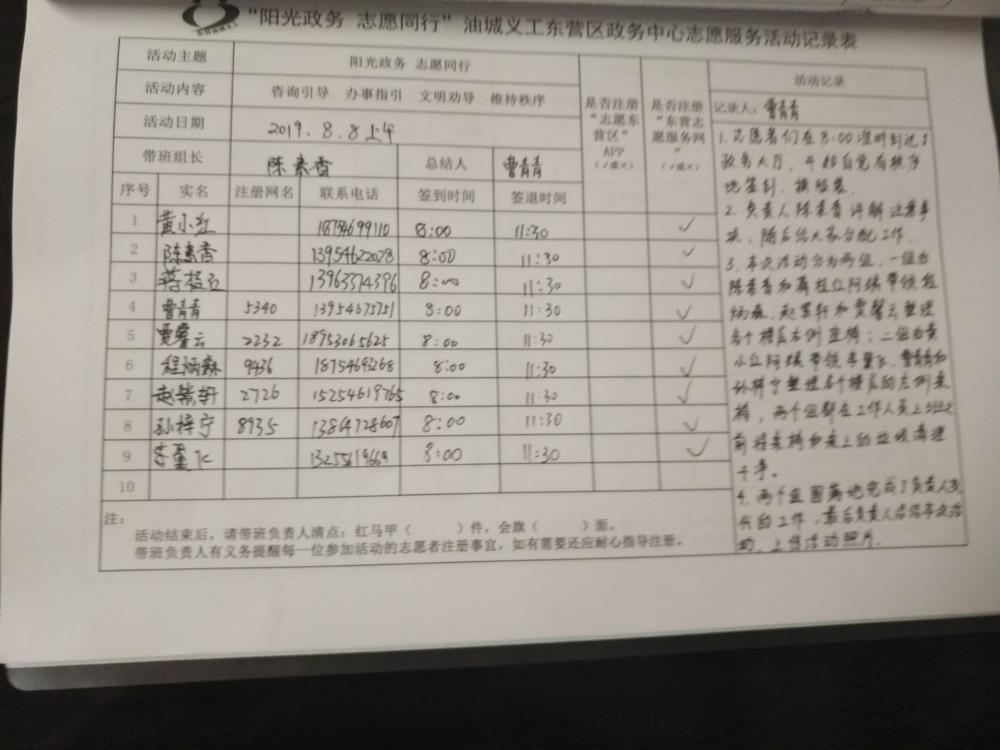 “阳光政务 志愿同行”油城义工东营区政务中心志愿服务活动记录表
活动主题 阳光政务 志愿同行
活动内容 咨询引导 办事指引 文明劝导 维持秩序
活动日期 2019.8.8上午
带班组长 陈素香 总结人 曹青青
是否注册“志愿东营区”APP（√或×）
是否注册“东营志愿服务网”（√或×）
序号 实名 注册网名 联系电话 签到时间 签退时间
1 黄小红 18754699110 8:00 11:30 √
2 陈素香 13954622028 8:00 11:30 √
3 蒋桂 13963374396 8:00 11:30 √
4 曹青青 5340 13954675751 8:00 11:30 √
5 贾馨云 2232 18953065625 8:00 11:30 √
6 程炳森 9436 18754693268 8:00 11:30 √
7 赵 轩 2726 15254619765 8:00 11:30 √
8 孙梓宁 8935 13864728607 8:00 11:30 √
9 李 飞 8:00 11:30 √
10
注：
活动结束后，请带班负责人清点：红马甲（ ）件，会旗（ ）面。
带班负责人有义务提醒每一位参加活动的志愿者注册事宜，如有需要还应耐心指导注册。
活动记录
记录人：曹青青
1.志愿者们在8:00准时到达了
政务大厅，并自觉有秩序
地签到、换服装。
2.负责人陈素香讲解注意事
项，随后给大家分配工作。
3.本次活动分为两组，一组由
陈素香和蒋桂 阿姨带领程
炳森、赵 轩和贾馨云整理
各个楼层右侧座椅；二组由黄
小红阿姨带领李 飞、曹青青和
孙梓宁整理各个楼层的左侧桌
椅，两个组都在工作人员上班之
前将桌椅和桌上的垃圾清理
干净。
4.两个组圆满地完成了负责人交
代的工作，最后负责人总结本次活
动，上传活动照片。